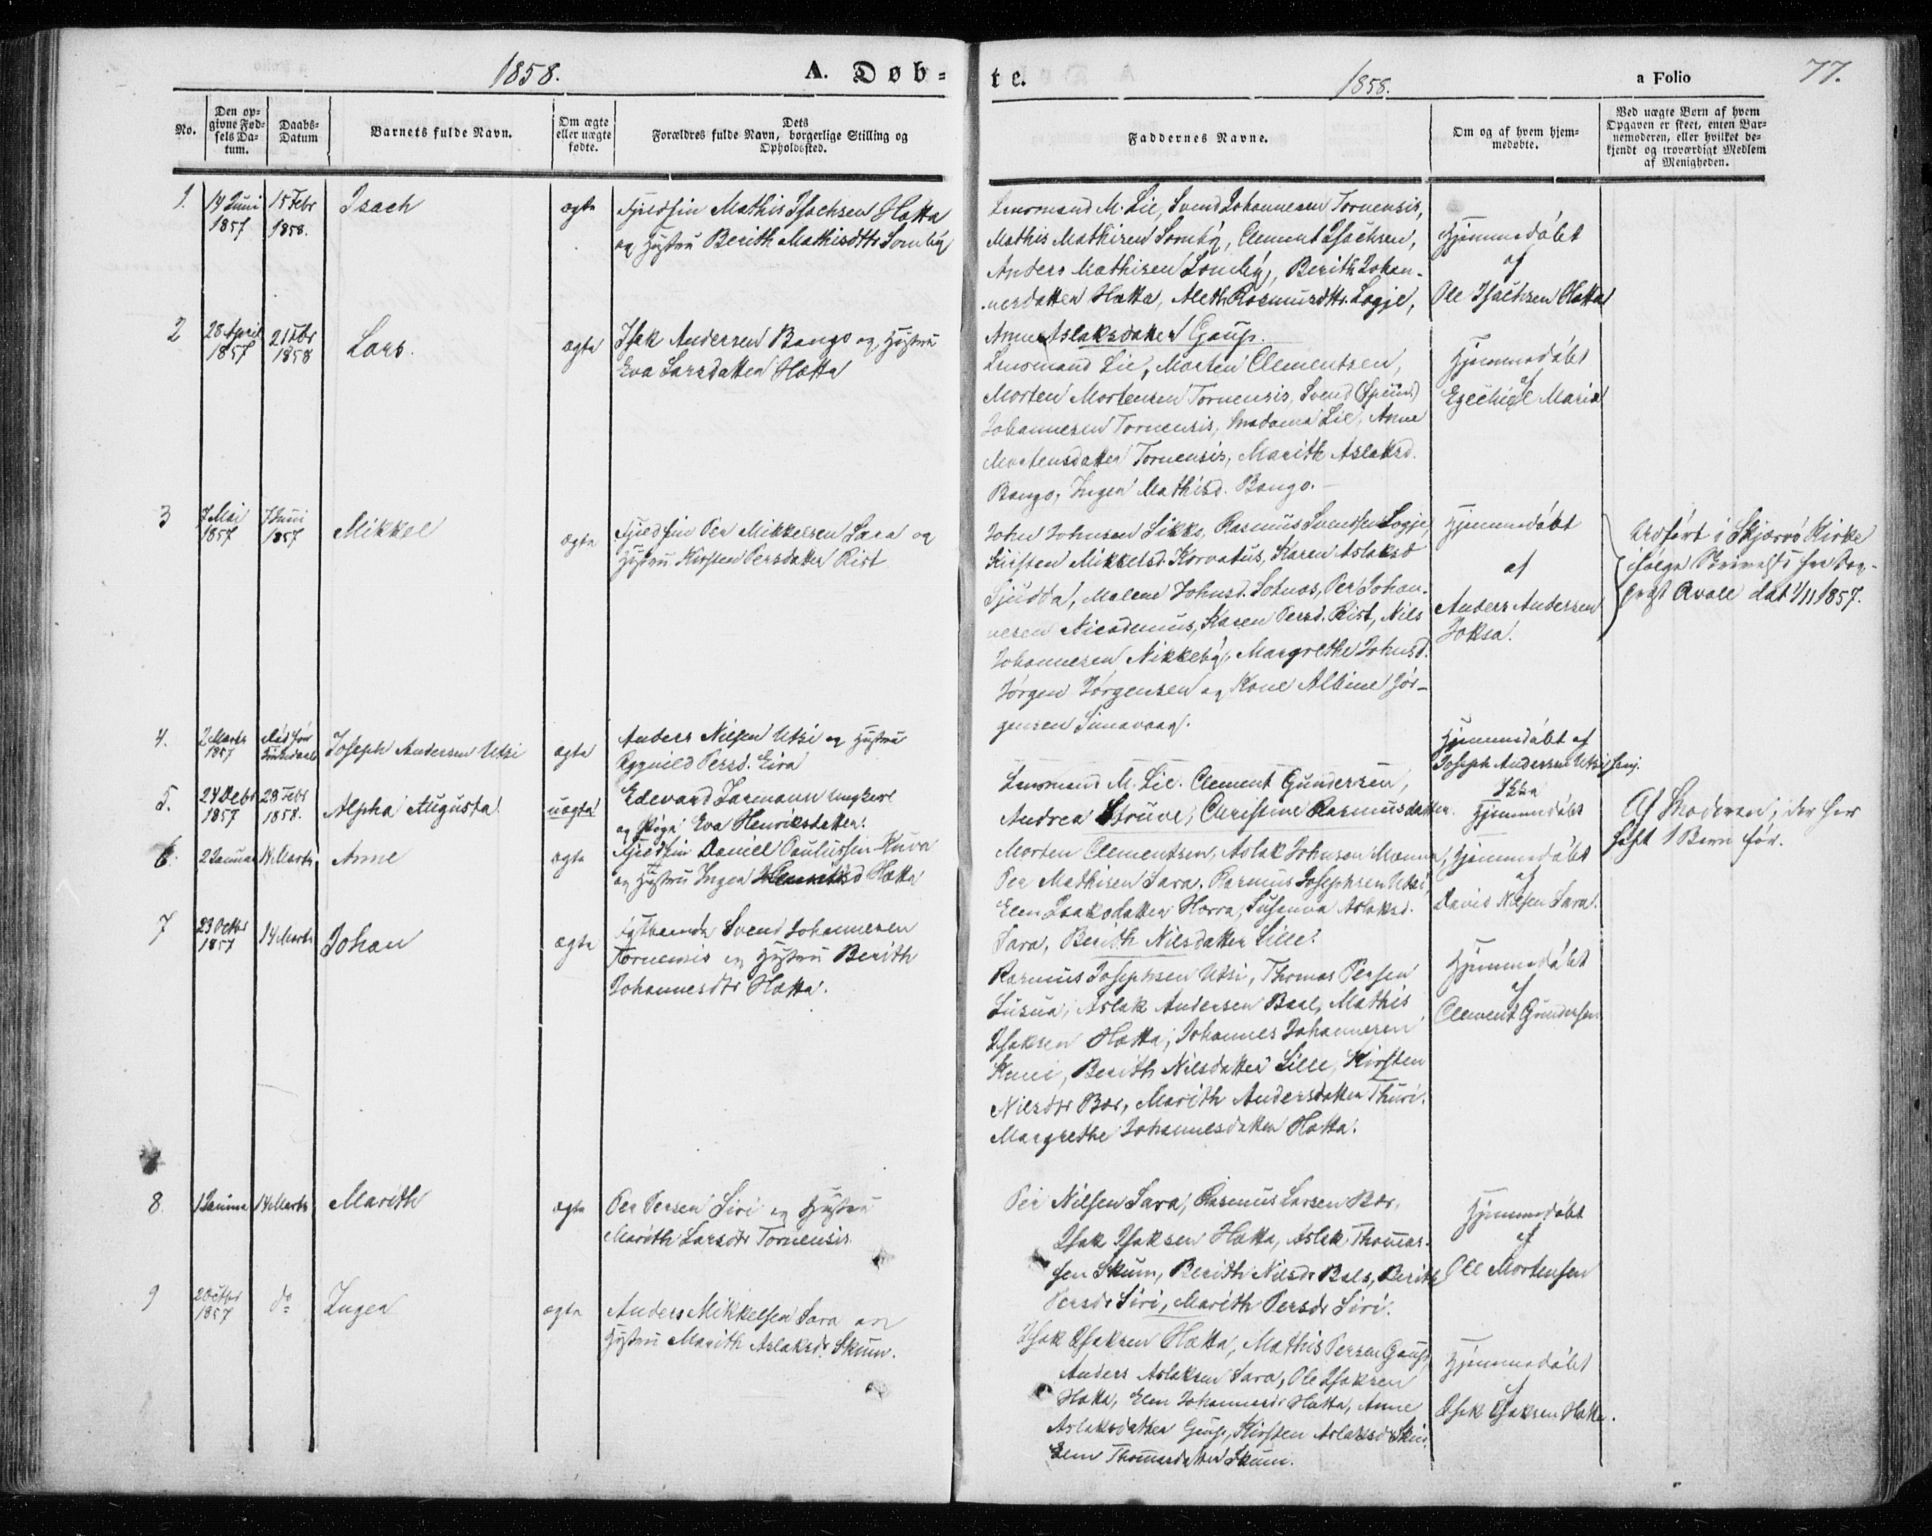 1858.
A. Døb-
te.
1858.
a Folio
77.
No.
Den op-
givne Fød-
sels Da-
tum.
Daabs-
Datum
Barnets fulde Navn.
Om ægte
eller uægte
fødte.
Dets
Forældres fulde Navn, borgerlige Stilling og
Opholdssted.
Faddernes Navne.
Om og af hvem hjem-
medøbte.
Ved uægte Børn af hvem
Opgaven er skeet, enten Bar-
nemoderen, eller hvilket be-
kjendt og troværdigt Medlem
af Menigheden.
1.
14 Juni
1857
15 Febr
1858.
Isach
ægte
Fjeldfin Mathis Isachsen Hætta
og Hustru Berith Mathisdtr Somby
Lensmand M. Lie, Svend Johannesen Tornensis,
Mathis Mathisen Somby, Clement Isachsen,
Anders Mathisen Somby, Berith Johan-
nesdatter Hætta, Aleth Rasmusdtr. Logje,
Anne Aslaksdatter Gaup.
Hjemmedøbt
af
Ole Isachsen Hætta
2
28 April
1857
21 Febr
1858
Lars.
ægte
Isak Andersen Bango og Hustru
Eva Larsdatter Hætta
Lensmand Lie, Morten Clementsen,
Morten Mortensen Tornensis, Svend
Johannesen Tornensis, Madame Lie, Anne
Mortensdatter Tornensis, Marith Aslaksd.
Bango, Ingen Mathisd. Bango.
Hjemmedøbt
af
Ezechiel Maria
3
7 Mai
1857
7 Juni
1857
Mikkel
ægte
Fjeldfin Per Mikkelsen Sara og
Hustru Kirsten Persdatter Rist
John Johnsen Sikko, Rasmus Svendsen Logje,
Kirsten Mikkelsd. Korvatus, Karen Aslaksd
Sjudda, Malene Johnsd. Sotnæs, Per Johan-
nesen Nicodemus, Karen Persd. Rist, Nils
Johannesen Nikkeby, Margrethe Johnsd.
Jørgen Jørgensen og Kone Albine Jør-
gensen Simavaag.
Hjemmedøbt
af
Anders Andersen
Joksa.
Udført i Skjervø Kirke
ifølge
Qvale dat 1/11 1857.
4.
2 Marts
1857
Joseph Andersen Utsi
ægte
Anders Nilsen Utsi og Hustru
Ragnild Persd. Eira
Hjemmedøbt af
Joseph Andersen Utsi senj.
5.
24 Decbr
1857
28 Febr
1858.
Alpha Augusta
uægte
Edevard Zarmann Ungkarl
og Pige Eva Henriksdatter.
Lensmand M. Lie. Clement Gundersen,
Andrea Struve, Christine Rasmusdatter.
Ikke
Hjemmedøbt
Af Moderen, der har
født 1 Barn før.
6.
2 Januar
14 Marts
Anne
ægte
Fjeldfin Daniel Paulussen Kuva
og Hustru Ingen Hætta
Morten Clementsen, Aslak Johnsen Mænna,
Per Mathisen Sara. Rasmus Josephsen Utsi,
Elen Isaksdatter Horra, Susanna Aslaksd.
Sara, Berith Nilsdatter Lille.
Hjemmedøbt
af
David Nilsen Sara.
7
23 Octbr
1857
14 Marts
Johan
ægte
Svend Johannesen
Tornensis og Hustru Berith
Johannesdtr Hætta.
Rasmus Josephsen Utsi, Thomas Persen
Susua, Aslak Andersen Baal, Mathis
Isaksen Hætta, Johannes Johannesen
Kunei, Berith Nilsdatter Lille, Kirsten
Nilsdtr Bær, Marith Andersdatter Thuri.
Margrethe Johannesdatter Hætta.
Hjemmedøbt
af
Clement Gundersen
8.
1 Januar
14 Marts
Marith
ægte
Per Persen Siri og Hustru
Marith Larsdtr Tornensis.
Per Nilsen Sara, Rasmus Larsen Bær,
Isak Isaksen Hætta, Aslak Thomas-
sen Skum, Berith Nilsdr Bals, Berith
Persdr Siri, Marith Persdr Siri.
Hjemmedøbt
af
Ole Mortensen
9
2 Octbr
1857
do
Ingen
ægte
Anders Mikkelsen Sara og
Hustru Marith Aslaksdr. Skum.
Isak Isaksen Hætta, Mathis Persen Gaup,
Anders Aslaksen Sara, Ole Isaksen
Hætta, Elen Johannesdr Hætta, Anne
Aslaksdatter Gaup, Kirsten Aslaksdr Skum
Elen Thomasdatter Skum.
Hjemmedøbt
af
Isak Isaksen Hætta.